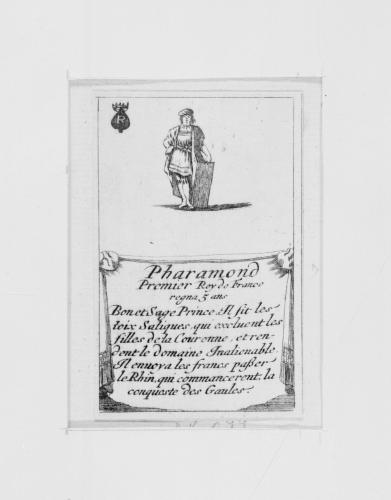 R
Pharamond
Premier Roy de France
regna 5 ans
Bon et Sage Prince. Il fit les
loix Saliques, qui excluent les
filles de la Couronne, et ren-
dent le domaine Inalienable.
Il envoya les francs paßer
le Rhin, qui commancerent, la
conqueste des Gaules.